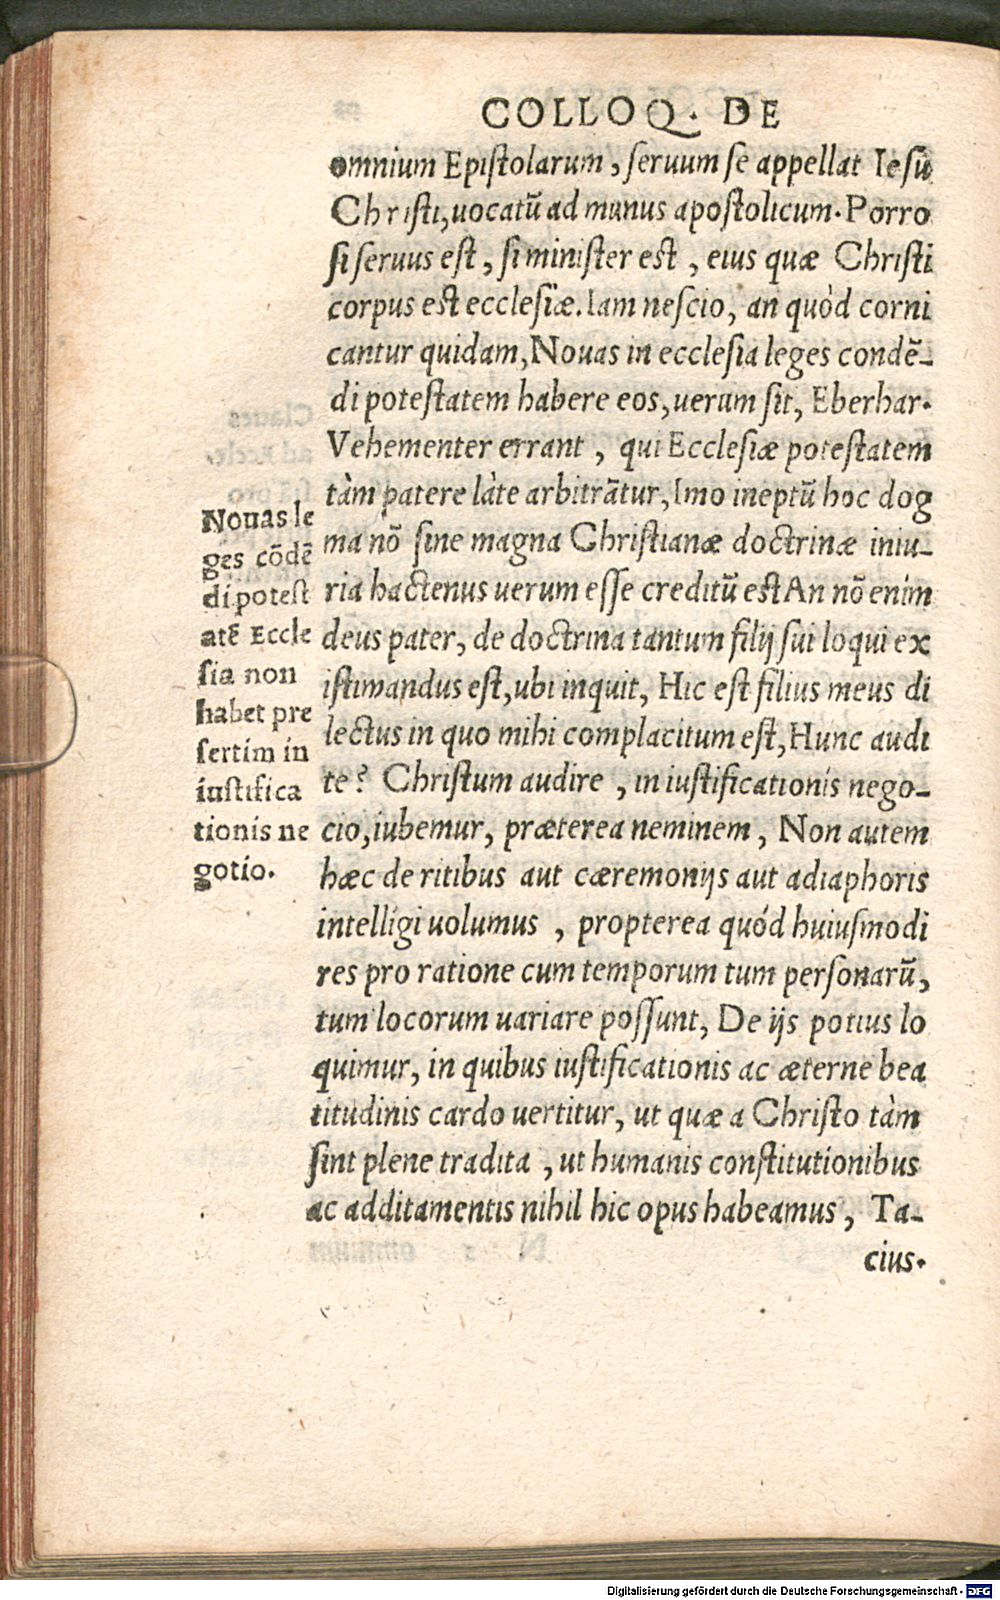 COLLOQ. DE
omnium Epistolarum, seruum se appellat Iesu
Christi, uocatũ ad munus apostolicum. Porro
si seruus est, si minister est, eius quæ Christi
corpus est ecclesiæ. Iam nescio, an quòd corni
cantur quidam, Nouas in ecclesia leges condẽ-
di potestatem habere eos, uerum sit, Eberhar.
Vehementer errant, qui Ecclesiæ potestatem
tàm patere làte arbitrãtur, Imo ineptũ hoc dog
ma nõ sine magna Christianæ doctrinæ iniu-
ria hactenus uerum esse creditũ est An nõ enim
deus pater, de doctrina tantum filij sui loqui ex
istimandus est, ubi inquit, Hic est filius meus di
lectus in quo mihi complacitum est, Hunc audi
te? Christum audire, in iustificationis nego-
cio, iubemur, præterea neminem, Non autem
hæc de ritibus aut cæremonijs aut adiaphoris
intelligi uolumus, propterea quód huiusmodi
res pro ratione cum temporum tum personarũ,
tum locorum uariare possunt, De ijs potius lo
quimur, in quibus iustificationis ac æterne bea
titudinis cardo uertitur, ut quæ a Christo tàm
sint plene tradita, ut humanis constitutionibus
ac additamentis nihil hic opus habeamus, Ta-
cius.
Nouas le
ges cõdẽ
di potest
atẽ Eccle
sia non
habet pre
sertim in
iustifica
tionis ne
gotio.
Digitalisierung gefördert durch die Deutsche Forschungsgemeinschaft - DFG